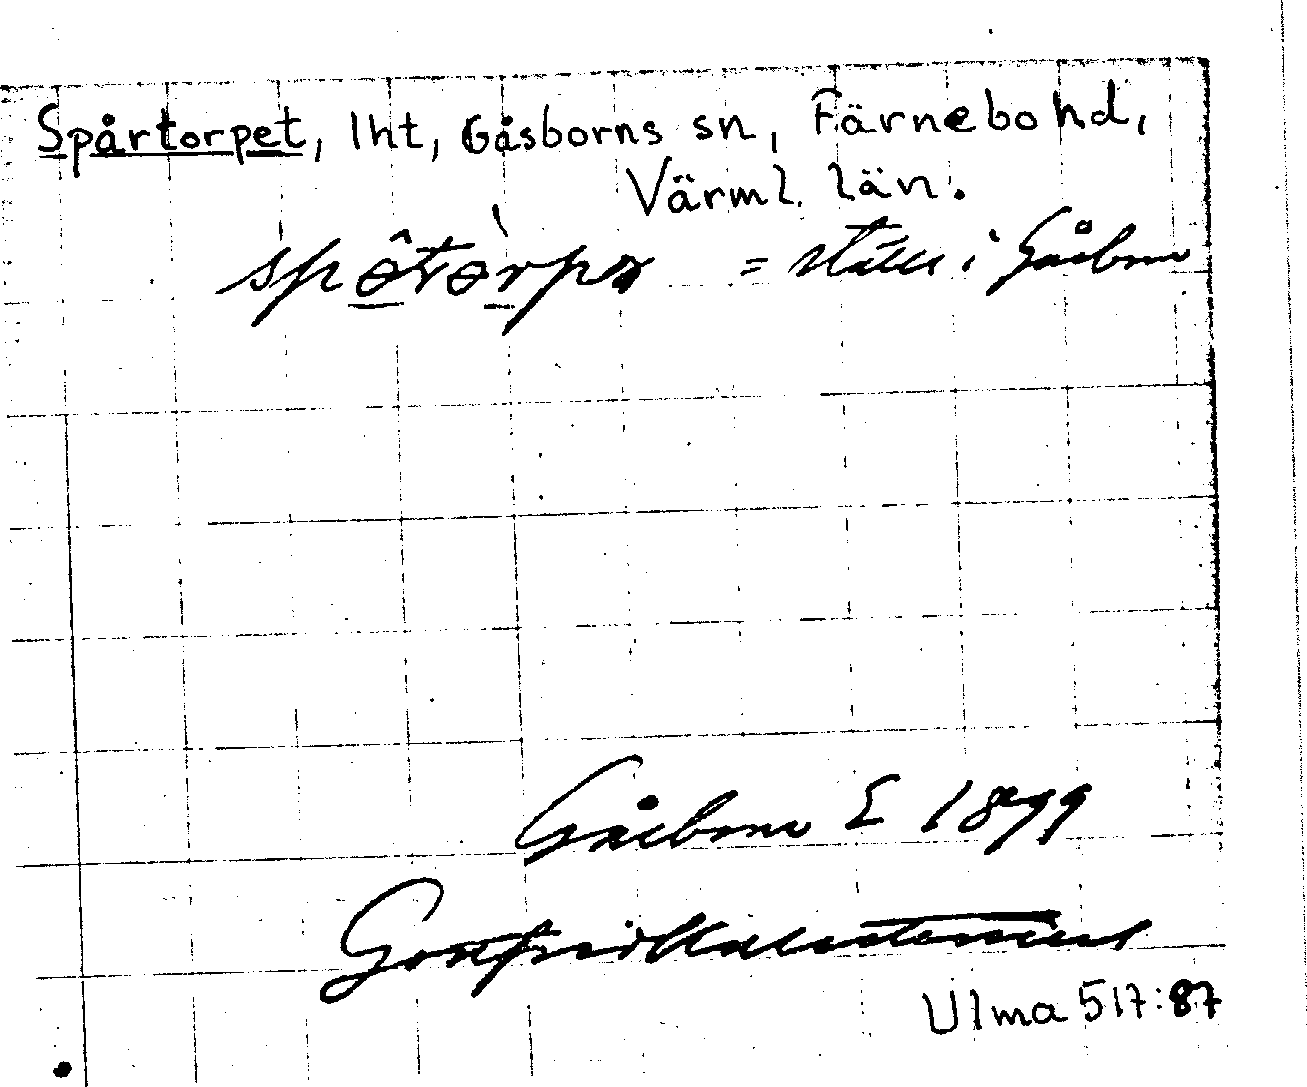 Spårtorpet, lht, Gåsborns sn, Färnebo hd,
Värml. län.
= ställe i Gåsborn
Gåsborn S 1899
Gottfrid Kallstenius
Ulma 517:87